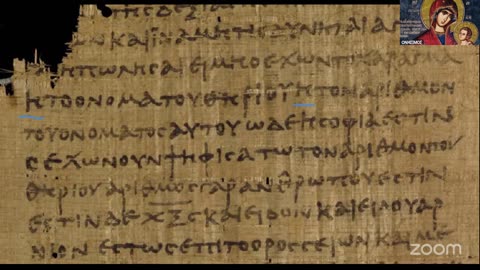 ΤΗϹ ΔΕΞΙ
ΩΝ ΚΑΙ ΙΝΑ ΜΗΤΙϹ ΔΥΝΗΤΑΙ ΑΓ
Η ΠΩΛΗϹΑΙ ΕΙ ΜΗ Ο ΕΧΩΝ ΤΟ ΧΑΡΑΓΜΑ
Η ΤΟ ΟΝΟΜΑ ΤΟΥ ΘΗΡΙΟΥ Η ΤΟΝ ΑΡΙΘΜΟΝ
ΤΟΥ ΟΝΟΜΑΤΟϹ ΑΥΤΟΥ ΩΔΕ Η ϹΟΦΙΑ ΕϹΤΙΝ
Ο ΕΧΩΝ ΟΥΝ ΨΗΦΙϹΑΤΩ ΤΟΝ ΑΡΙΘΜΟΝ ΤΟΥ
ΘΗΡΙΟΥ ΑΡΙΘΜΟϹ ΓΑΡ ΑΝΘΡΩΠΟΥ ΕϹΤΙΝ
ΕϹΤΙΝ ΔΕ ΧΞϹ ΚΑΙ ΕΙΔΟΝ ΚΑΙ ΕΙΔΟΥ ΑΡ
ΝΙΟΝ ΕϹΤΩϹ ΕΠΙ ΤΟ ΟΡΟϹ ϹΕΙΩΝ ΚΑΙ ΜΕ
zoom